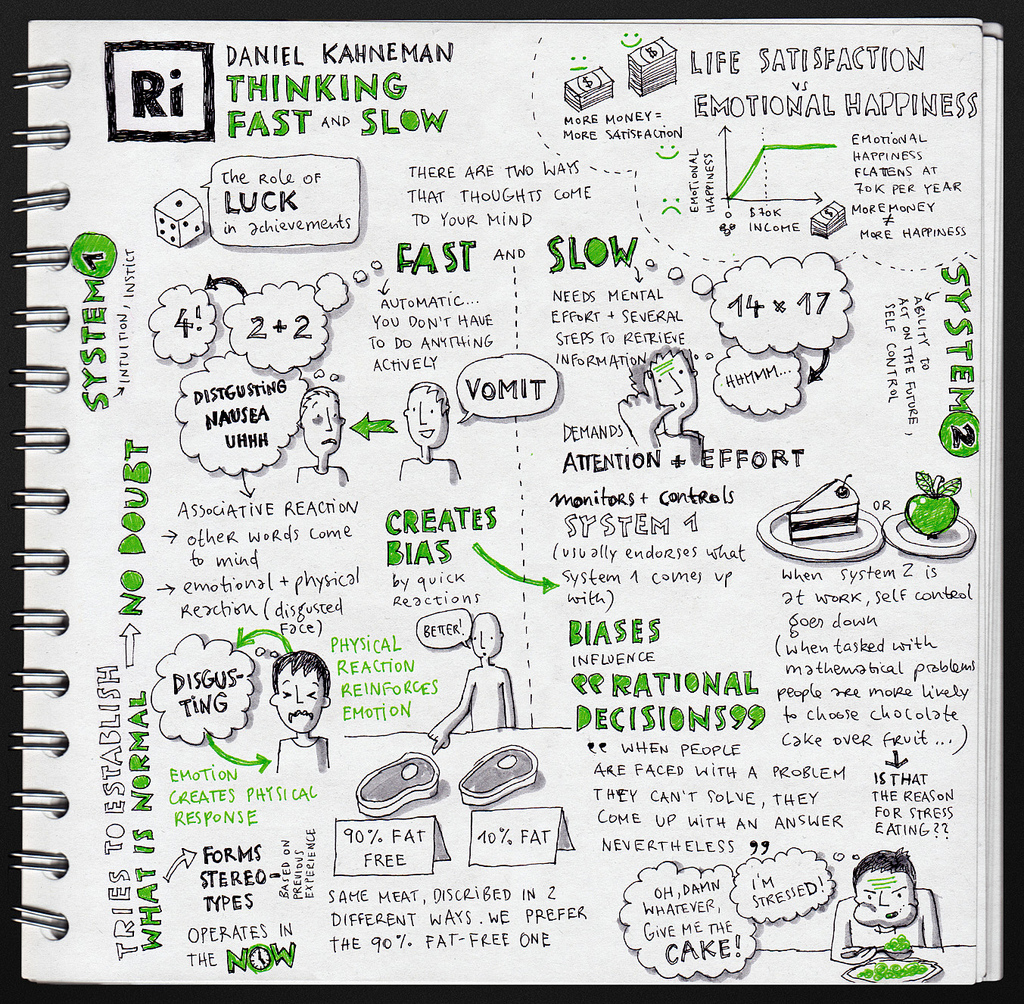 Ri
DANIEL KAHNEMAN
THINKING
FAST AND SLOW
LIFE SATISFACTION
VS
EMOTIONAL HAPPINESS
MORE MONEY =
MORE SATISFACTION
EMOTIONAL
HAPPINESS
0
$70K
INCOME
EMOTIONAL
HAPPINESS
FLATTENS AT
70K PER YEAR
MORE MONEY
≠
MORE HAPPINESS
The Role of
LUCK
in achievements
THERE ARE TWO WAYS
THAT THOUGHTS COME
TO YOUR MIND
FAST AND SLOW
SYSTEM 1
→ INTUITION, INSTICT
4!
2+2
AUTOMATIC...
YOU DON'T HAVE
TO DO ANYTHING
ACTIVELY
DISTGUSTING
NAUSEA
UHHH
VOMIT
NEEDS MENTAL
EFFORT + SEVERAL
STEPS TO RETRIEVE
INFORMATION
14 x 17
HHMMM...
SYSTEM 2
ABILITY TO
ACT ON THE FUTURE,
SELF CONTROL
DEMANDS
ATTENTION + EFFORT
monitors + controls
SYSTEM 1
(usually endorses what
System 1 comes up
with)
OR
when system 2 is
at work, self control
goes down
(when tasked with
mathematical problems
people are more likely
to choose chocolate
cake over fruit...)
IS THAT
THE REASON
FOR STRESS
EATING??
ASSOCIATIVE REACTION
→ other words come
to mind
→ emotional + physical
Reaction (disgusted
face)
CREATES
BIAS
by quick
Reactions
BIASES
INFLUENCE
“RATIONAL
DECISIONS”
“ WHEN PEOPLE
ARE FACED WITH A PROBLEM
THEY CAN'T SOLVE, THEY
COME UP WITH AN ANSWER
NEVERTHELESS ”
DISGUS-
TING
PHYSICAL
REACTION
REINFORCES
EMOTION
EMOTION
CREATES PHYSICAL
RESPONSE
BETTER!
90% FAT
FREE
10% FAT
SAME MEAT, DISCRIBED IN 2
DIFFERENT WAYS. WE PREFER
THE 90% FAT-FREE ONE
TRIES TO ESTABLISH
WHAT IS NORMAL
NO DOUBT
FORMS
STEREO-
TYPES
BASED ON
PREVIOUS
EXPERIENCE
OPERATES IN
THE NOW
OH, DAMN
WHATEVER,
GIVE ME THE
CAKE!
I'M
STRESSED!